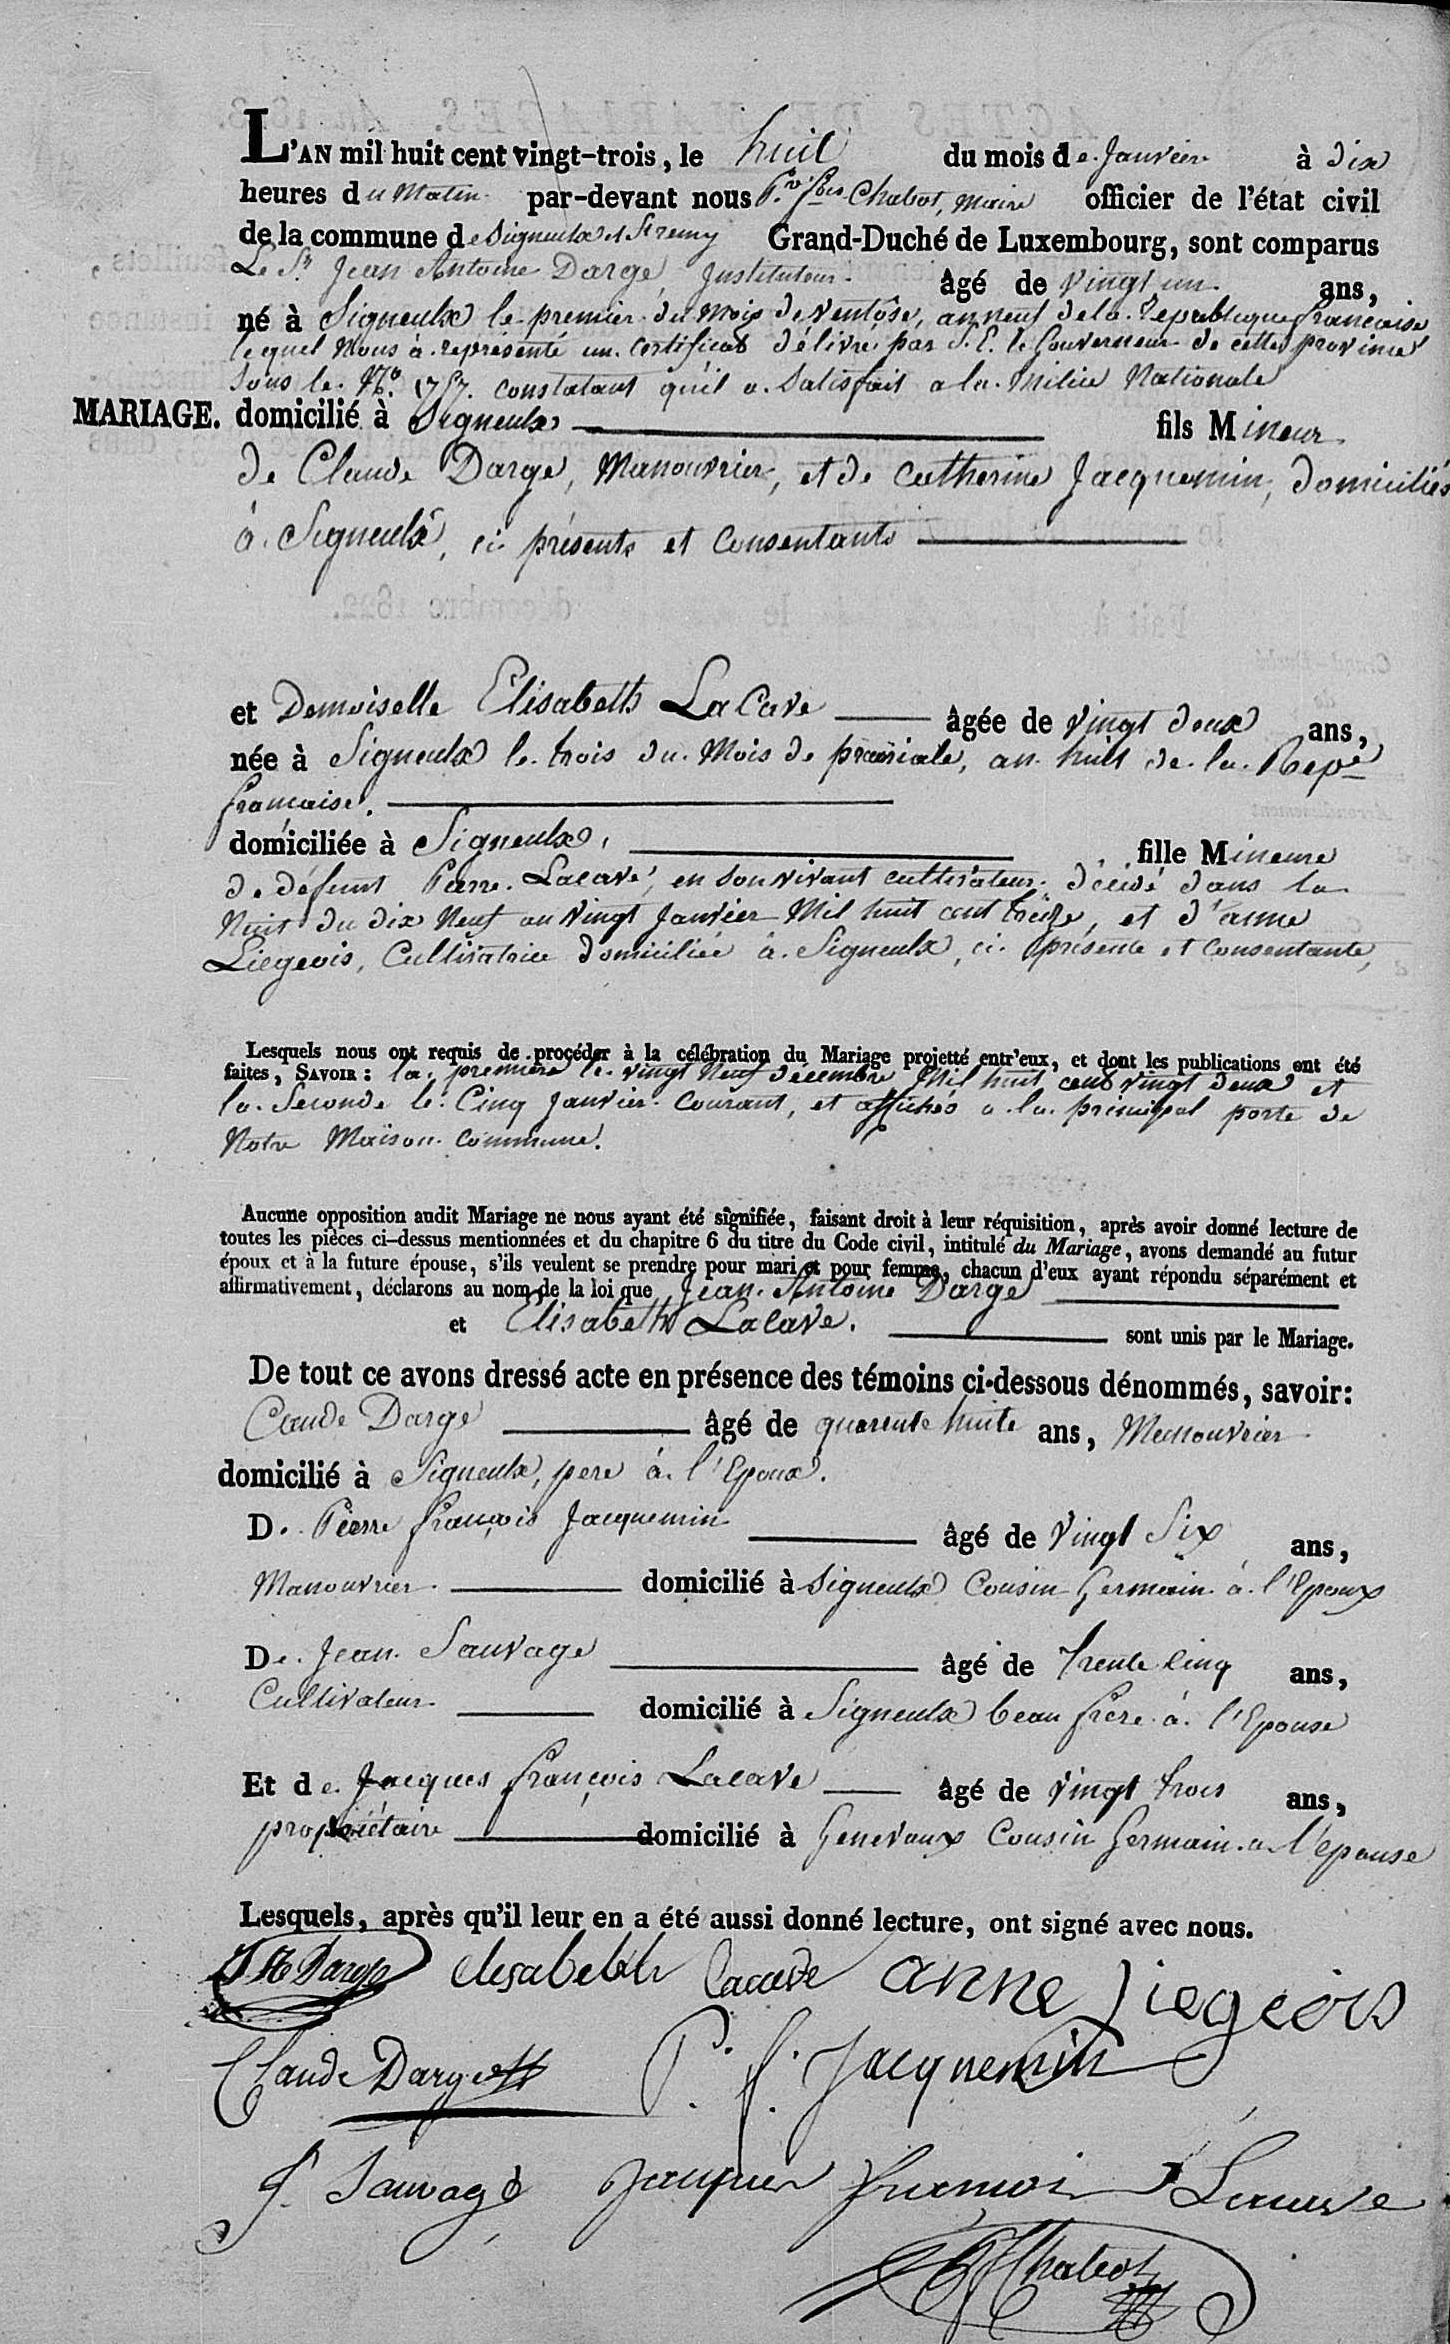 L'AN mil huit cent vingt-trois, le huit du mois de Janvier à dix
heures du Matin par-devant nous P.re f.cois Chabot, Maire officier de l'état civil
de la commune de Signeulx et St remy Grand-Duché de Luxembourg, sont comparus
Le Sr. Jean Antoine Dargé, Instituteur âgé de vingt un ans,
né à Signeulx le premier du Mois de Ventôse, an neuf de la Republique francaise
lequel Nous à representé un Certificat délivré par S. E. le Gouverneur de cette province
Sous le No. 1757. constatant qu'il a Satisfait a la Milice Nationale
MARIAGE. domicilié à Signeulx fils Mineur
de Claude Dargé, Manouvrier, et de Catherine Jacquemin, domiciliés
à Signeulx, ci présents et Consentants
et Demoiselle Elisabeth LaCave âgée de Vingt deux ans,
née à Signeulx le trois du Mois de prairiale, an huit de la Repe
française.
domiciliée à Signeulx, fille Mineure
de défunt Pierre Lacave, en Son vivant cultivateur, décédé dans la
Nuit du dix Neuf au Vingt Janvier Mil huit cent treize, et d'anne
Liegeois, Cultivatrice domiciliée à Signeulx, ci présente et Consentante,
Lesquels nous ont requis de procéder à la célébration du Mariage projetté entr'eux, et dont les publications ont été
faites, SAVOIR : la premiere le vingt Neuf décembre Mil huit cent vingt deux et
la Seconde le Cinq Janvier Courant, et affichés a la principal porte de
Notre Maison Commune.
Aucune opposition audit Mariage ne nous ayant été signifiée, faisant droit à leur réquisition, après avoir donné lecture de
toutes les pièces ci-dessus mentionnées et du chapitre 6 du titre du Code civil, intitulé du Mariage, avons demandé au futur
époux et à la future épouse, s'ils veulent se prendre pour mari et pour femme, chacun d'eux ayant répondu séparément et
affirmativement, déclarons au nom de la loi que Jean Antoine Dargé
et Elisabeth Lacave. sont unis par le Mariage.
De tout ce avons dressé acte en présence des témoins ci-dessous dénommés, savoir:
Caude Dargé âgé de quarente huite ans, Manouvrier
domicilié à Signeulx, pere à l'Epoux.
D. Pierre françois Jacquemin âgé de Vingt Six ans,
Manouvrier domicilié à Signeulx Cousin Germain à l'Epoux
De Jean Sauvage âgé de trente cinq ans,
Cultivateur domicilié à Signeulx beau frere à l'Epouse
Et de Jacques françois Lacave âgé de vingt trois ans,
propriétaire domicilié à Genevaux Cousin Germain a l'epouse
Lesquels, après qu'il leur en a été aussi donné lecture, ont signé avec nous.
Dargé elesabebth Lacave anne liegeois
Claude Dargé P. f. Jacquemin
J. Sauvage Jacques francois Lacave
Chabot